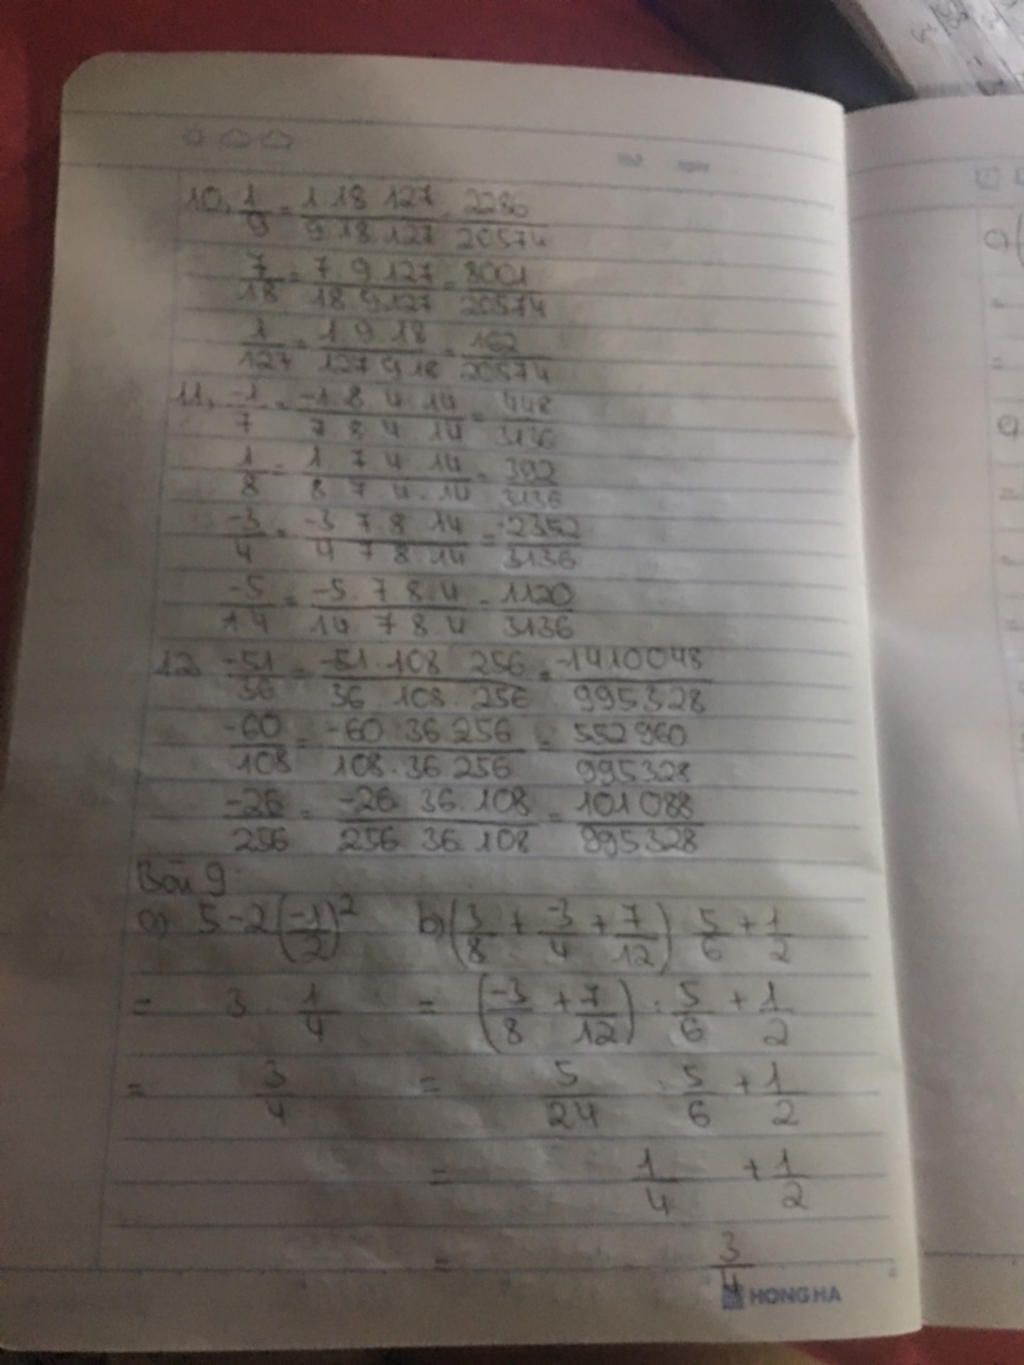 10, 1/9 = 1.18.127/9.18.127 = 2286/20574
7/18 = 7.9.127/18.9.127 = 8001/20574
1/127 = 1.9.18/127.9.18 = 162/20574
11, -1/7 = -1.8.4.14/7.8.4.14 = 448/3136
1/8 = 1.7.4.14/8.7.4.14 = 392/3136
-3/4 = -3.7.8.14/4.7.8.14 = -2352/3136
-5/14 = -5.7.8.4/14.7.8.4 = 1120/3136
12 -51/36 = -51.108.256/36.108.256 = -1410048/995328
-60/108 = -60.36.256/108.36.256 = 552960/995328
-26/256 = -26.36.108/256.36.108 = 101088/995328
Bài 9
a) 5-2(-1/2)² b) (3/8 + -3/4 + 7/12) : 5/6 + 1/2
= 3 . 1/4 = (-3/8 + 7/12) : 5/6 + 1/2
= 3/4 = 5/24 : 5/6 + 1/2
= 1/4 + 1/2
= 3/4
HONG HA